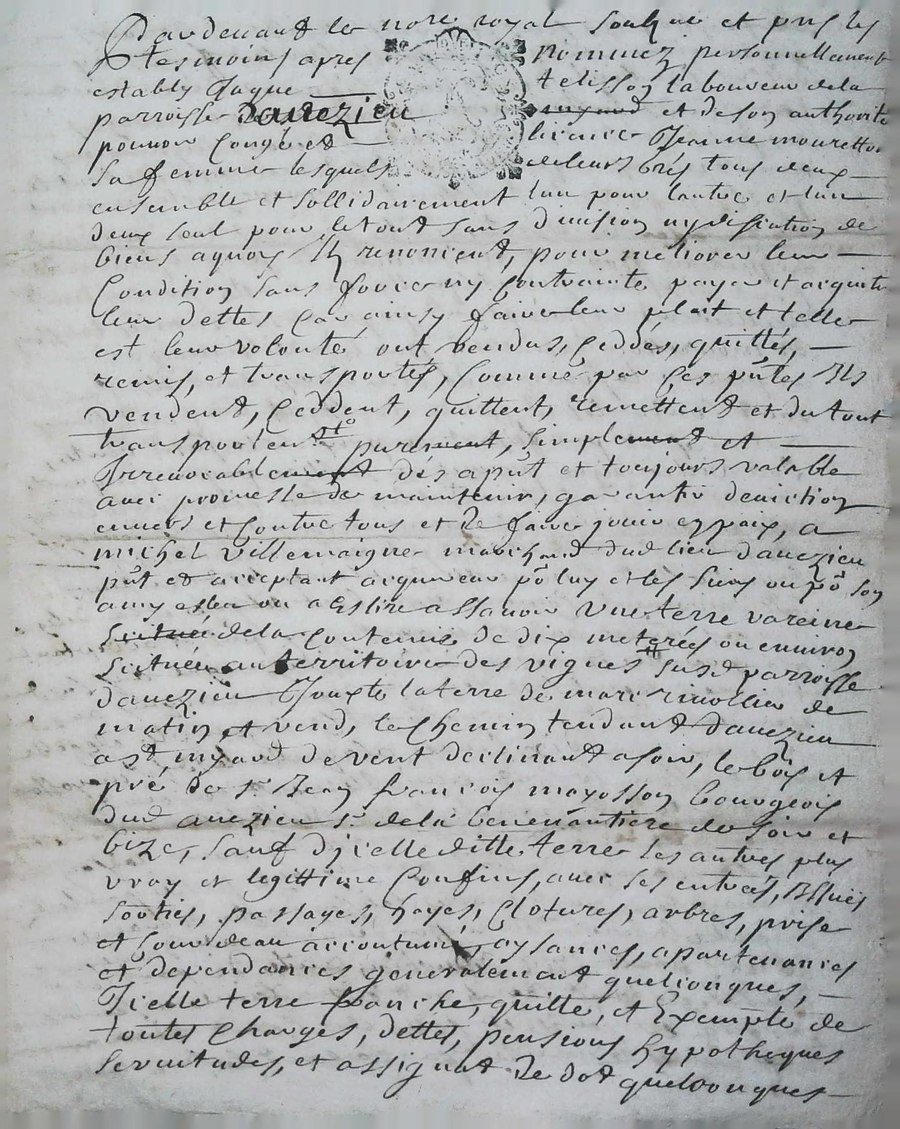 Pardevant le nore royal soubné et pnts les
tesmoins apres nommez personnellement
estably Jaque telisson laboureur de la
parroisse Davezieu et de son authorité
pouvoir Congé et licance Jeanne mouretton
sa femme lesquels de leurs grés tous deux
ensemble et sollidairement lun pour lautre et lun
deux seul pour le tout sans division ny disfiation de
biens aquoy Ils renoncent, pour meliorer leur
Condition sans force ny Contrainte payer et aquiter
leur dettes Car ainsy faire leur plait et telle
est leur volonté ont vendus, Ceddés, quittés,
remis, et transportés, Comme par Ces pntes Ils
vendent, Ceddent, quittent, remettent et du tout
transportent purement, simplement et
Irrevocablement dés apnt et toujours valable
avec promesse de maintenir, garantir deviction
envers et Contre tous et de faire jouir en paix, a
michel villemaigne marchand dud lieu davezieu
pnt et acceptant aquereur pr luy et les siens ou pr son
amy esleu ou a Eslire assavoir une terre vareine
de la Contenue de dix meterées ou environ
scituée au territoire des vignes susd parroisse
davezieu Jouxte la terre de marc de
matin et vend, le Chemin tendant davezieu
a st myard de vent declinant a soir, le bois et
pré de sr Jean françois mayosson bourgeois
dud avezieu sr de la de soir et
bize, sauf dicelle ditte terre les autres plus
vray et legittime Confins, avec ses entrées, Issues
sorties, passages, hayes, Clotures, arbres, prise
et Cours deau accoutumé, aysances, apartenances
et dependances generalement quelconques,
Icelle terre franche, quitte, et Exempte de
toutes Charges, dettes, pensions hypotheques
servitudes, et assignat de dot quelconques